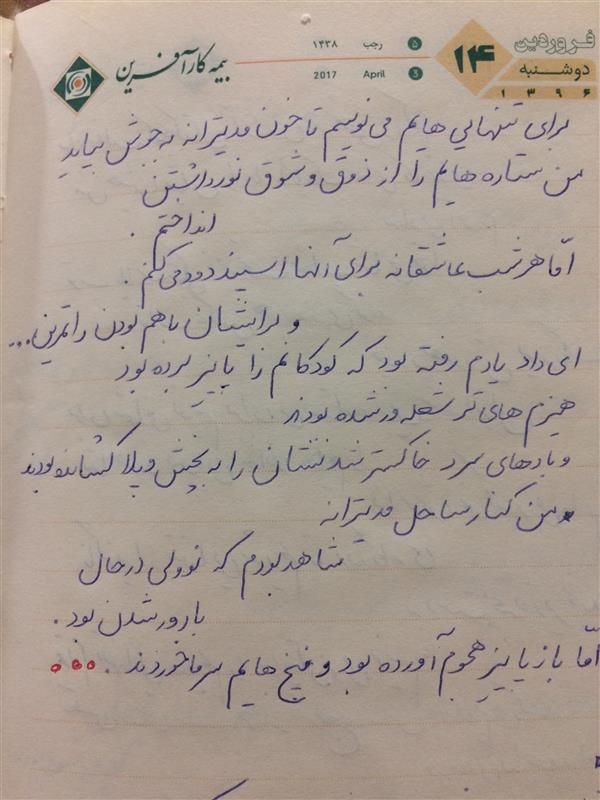 فروردین
۱۴
دوشنبه
۱۳۹۶
۵ رجب ۱۴۳۸
3 April 2017
بیمه کارآفرین
برای تنهایی هایم می نویسم تا خون مدیترانه به جوش بیاید
من ستاره هایم را از ذوق و شوق نور داشتن
انداختم .
امّا هر شب عاشقانه برای آنها اسپند دود می کنم .
و برایشان با هم بودن را تمرین...
ای داد یادم رفته بود که کودکانم را پاییز برده بود
هیزم های تر شعله ور شده بودند
و بادهای سرد خاکستر شدنشان را به پخش و پلا کشانده بودند
من کنار ساحل مدیترانه
شاهد بودم که نوولی در حال
بارور شدن بود .
امّا باز پاییز هجوم آورده بود و میخ هایم سرما خوردند ...